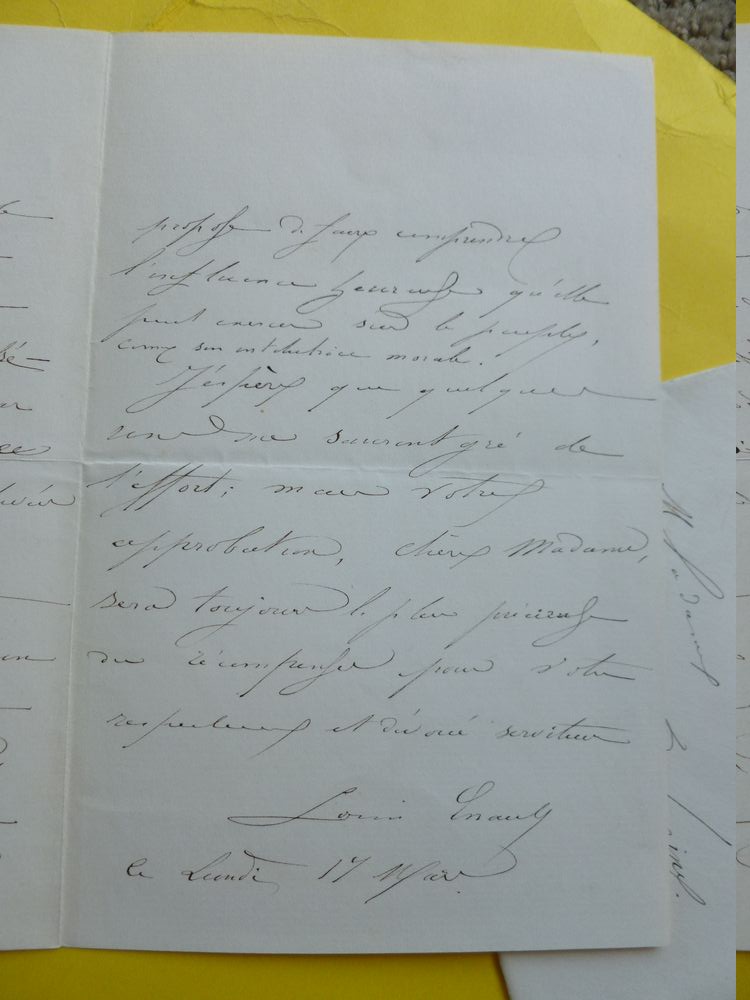 propose de faire comprendre
l'influence heureuse qu'elle
peut exercer sur le peuple,
comme son institutrice morale.
J'espère que quelques
uns me sauront gré de
l'effort; mais votre
approbation, chère Madame,
sera toujours la plus précieuse
des récompenses pour votre
respectueux et dévoué serviteur
Louis Enault
ce Lundi 17 Mars.